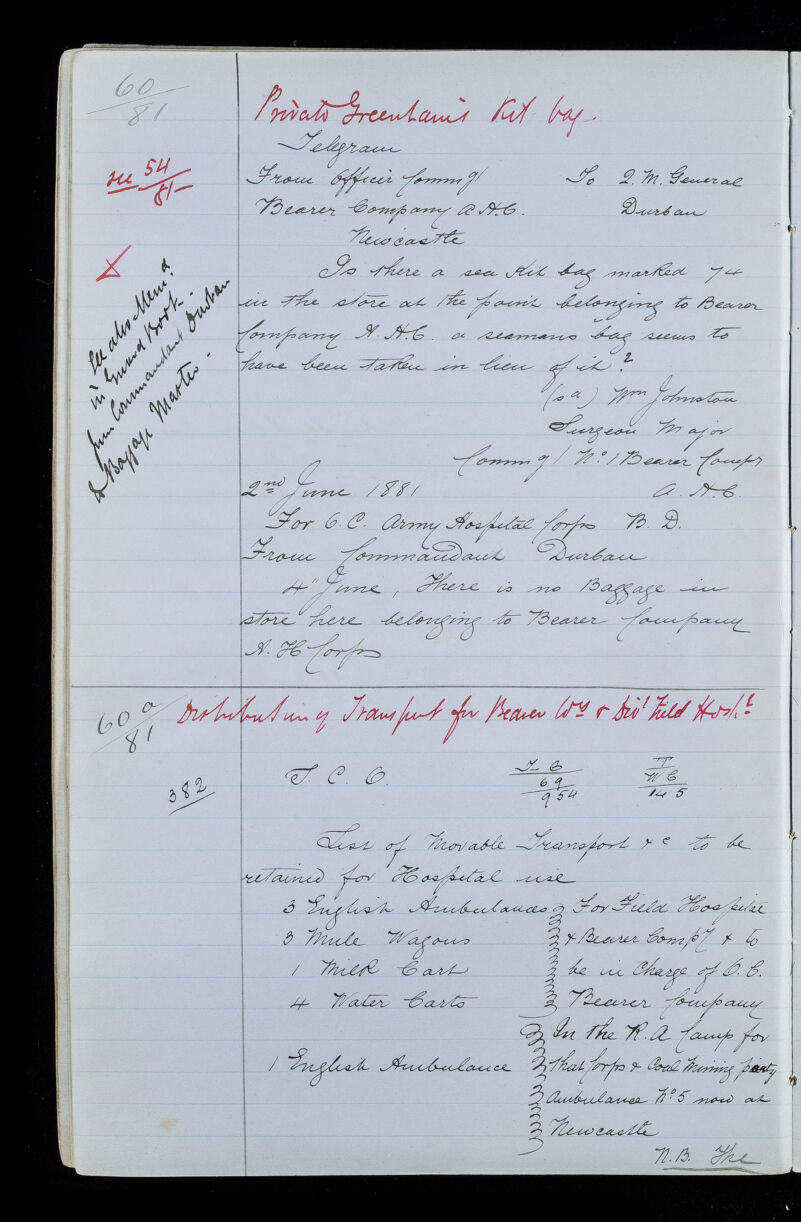 60
81
Private Greenham's Kit bag.
see 54
81
Telegram
From Officer Commg/ To Q. M. General
Bearer Company A.H.C. Durban
Newcastle
Is there a sea Kit bag marked 74
in the store at the point belonging to Bearer
Company A.H.C. a seamans bag seems to
have been taken in lieu of it?
See also Mem.d
in Guard Book
from Commandant Durban
& Baggage Master -
(sd) Wm Johnston
Surgeon Major
Commg/ No 1 Bearer Compy
2nd June 1881 A.H.C.
For O.C. Army Hospital Corps B.D.
From Commandant Durban
4" June, There is no Baggage in
store here belonging to Bearer Company
A.H Corps
60a
81
Distribution of Transport for Bearer Coy & Divl Field Hospl
382
T. C. O.
69
954
W C
145
List of Movable Transport &c to be
retained for Hospital use
3 English Ambulances For Field Hospital
3 Mule Wagons & Bearer Compy & to
1 Milk Cart be in Charge of O.C.
4 Water Carts Bearer Company
In the R.A Camp for
1 English Ambulance that Corps & Coal Mining party
Ambulance No 5 now at
Newcastle
N.B. The